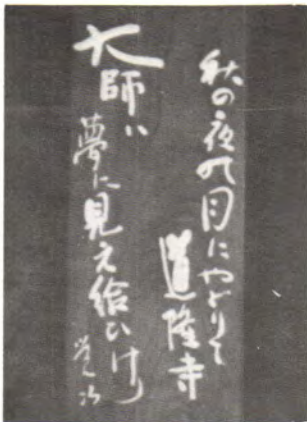 秋の夜の月にやどりて
道隆寺
大師ハ
夢に見え給ひけり